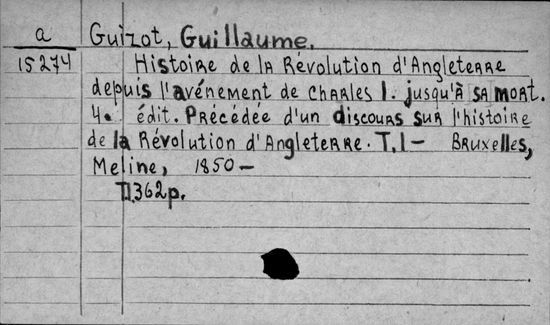 a Guizot, Guillaume.
15274 Histoire de la Révolution d'Angleterre
depuis l'avénement de Charles I. jusqu'à sa mort.
4. édit. Précédée d'un discours sur l'histoire
de la Révolution d'Angleterre. T.I- Bruxelles,
Meline, 1850-
T.I.362p.